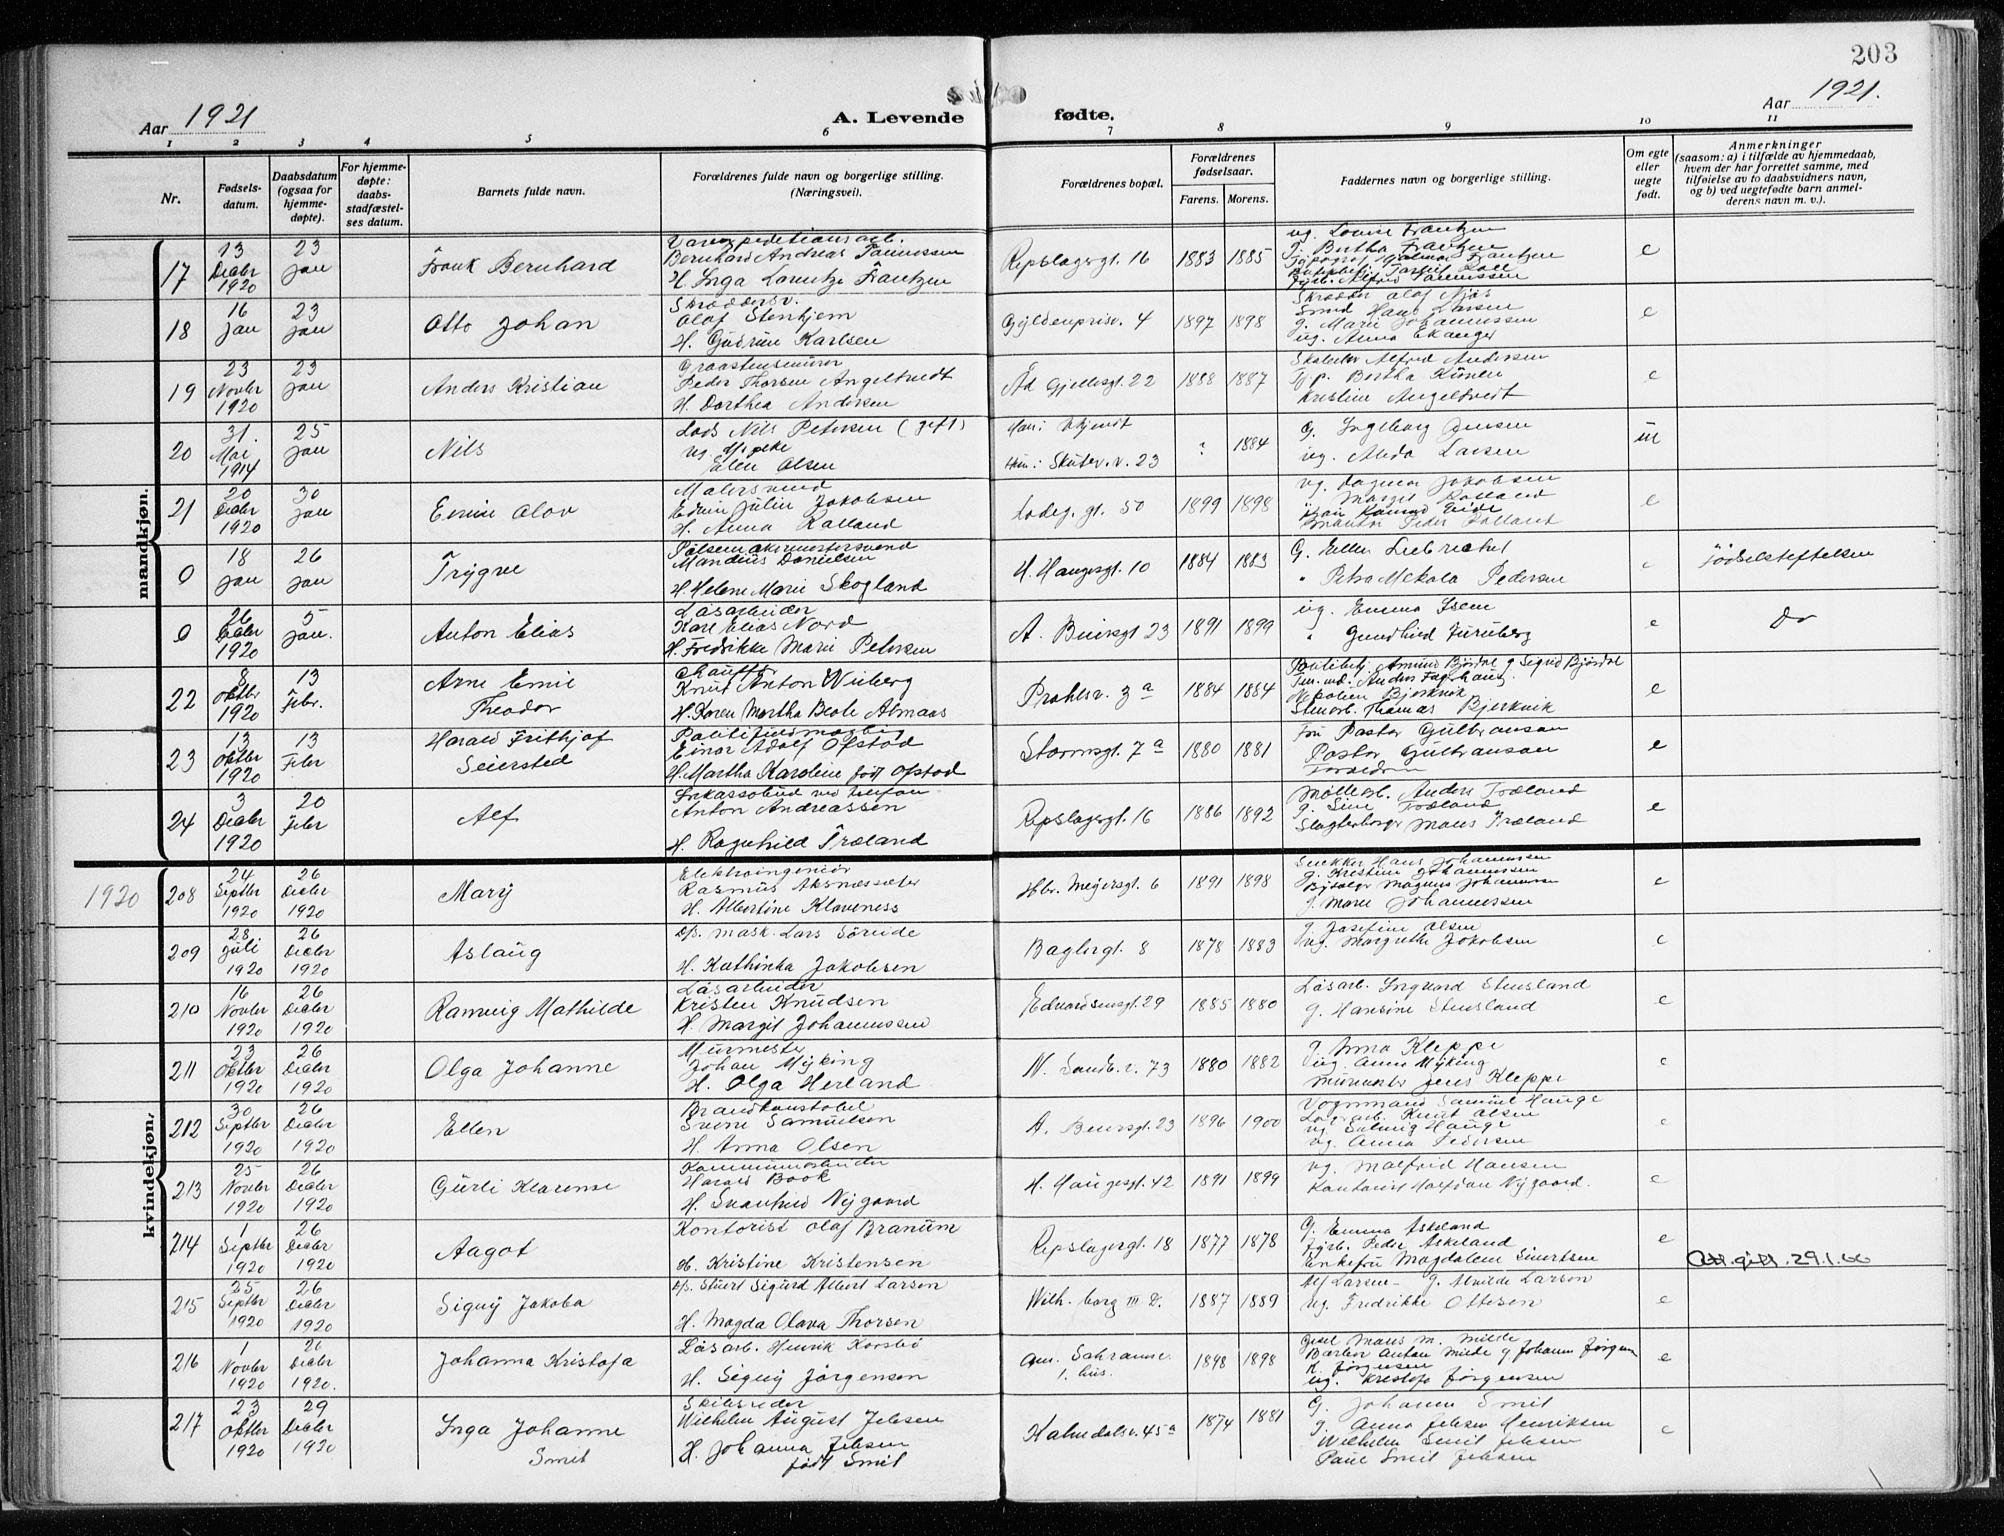 203
Aar 1921
A. Levende fødte.
Aar 1921.
1 2 3 4 5 6 7 8 9 10 11
Nr.
Fødsels-
datum.
Daabsdatum
(ogsaa for
hjemme-
døpte).
For hjemme-
døpte:
daabs-
stadfæstel-
ses datum.
Barnets fulde navn.
Forældrenes fulde navn og borgerlige stilling.
(Næringsvei).
Forældrenes bopæl.
Forældrenes
fødselsaar.
Farens. Morens.
Faddernes navn og borgerlige stilling.
Om egte
eller
uegte
født.
Anmerkninger
(saasom: a) i tilfælde av hjemmedaab,
hvem der har forrettet samme, med
tilføielse av to daabsvidners navn,
og b) ved uegtefødte barn anmel-
derens navn m. v.).
mandkjøn.
17
13
Decbr
1920
23
Jan
Frank Bernhard
Bernhard Andreas
H. Inga Lorentze Frantzen
Repslagergt. 16
1883 1885
ug. Louise Frantzen
g. Bertha Frantzen
e
18
16
Jan
23
Jan
Otto Johan
Skræddersv.
Olaf Stenhjem
H. Gudrun Karlsen
Gyldenprisv. 4
1897 1898
Skrædder Olaf Njøs
Smed Hans Larsen
g. Marie Johannessen
ug. Anna Ekanger
e
19
23
Novbr
1920
23
Jan
Anders Kristian
Graastensmurer
Peder Thorsen Angeltvedt
H. Dorthea Andersen
Ad Gjellesgt. 22
1888 1887
Alfred Andersen
Kristine Angeltvedt
e
20
31.
Mai
1914
25
Jan
Nils
Lods Nils Petersen (gift)
ug.
Elen Olsen
Han: Ukjendt
Hun: Skutev. v. 23
? 1884
g. Ingeborg Jensen
ug. Alida Larsen
u
21
20
Decbr
1920
30
Jan
Malersvend
Edvin Julin Jakobsen
H. Anna Kalland
Ladeg. gt. 50
1899 1898
ug. Dagmar Jakobsen
Margit Kalland
e
0
18
Jan
26
Jan
Trygve
Pølsemakermestersvend
Mandius Danielsen
H. Helene Marie Skogland
H. Haugesgt. 10
1884 1883
g. Ellen
" Petra Mekala Pedersen
e
Fødselsstiftelsen
0
26
Decbr
1920
5
Jan.
Anton Elias
Løsarbeider
Karl Elias Nord
H. Fredrikke Marie Petersen
A. Buirsgt 23
1891 1899
ug. Emma Isene
e
Do
22
8
Oktbr
1920
13
Febr.
Arne Emil
Theodor
Chauffør
Knut Anton Wiberg
H. Karen Martha Beate Almaas
Prahlsv. 3 a
1884 1884
Amund Bjørdal g Sigrid Bjørdal
Stenarb. Thomas Bjerkvik
e
23
13
Oktbr
1920
13
Febr
Harald Frithjof
Seiersted
Politifuldmægtig
Einar Adolf Ofstad
H. Martha Karoline født Ofstad
Stormsgt. 7 a
1880 1881
Fru Pastor Gulbranson
Pastor Gulbranson
Forældrene
e
24
3
Decbr
1920
20
Febr
Alf
Inkassobud ved telefon
Anton Andreassen
H. Ragnhild Træland
Repslagergt. 16
1886 1892
Møllearb. Anders Træland
g. Sine Træland
Slagterborger Mons Træland
e
1920
kvindekjøn.
208
24
Septbr
1920
26
Decbr
1920
Mary
Elektroingeniør
Rasmus Aksnessæter
H. Albertine Klaveness
Hbr. Meyersgt. 6
1891 1898
Snekker Hans Johannessen
g. Kristine Johannessen
Magnus Johannessen
g. Marie Johannessen
e
209
28
Juli
1920
26
Decbr
1920
Aslaug
D/S. mask. Lars Søreide
H. Kathinka Jakobsen
Baglergt. 8
1878 1883
g. Josefine Olsen
ug. Margrethe Jakobsen
e
210
16
Novbr
1920
26
Decbr
1920
Ranveig Mathilde
Løsarbeider
Kristen Knudsen
H. Margit Johannessen
Edvardsensgt. 29
1885 1880
Løsarb. Ingvard Stensland
g. Hansine Stensland
e
211
23
Oktbr
1920
26
Decbr
1920
Olga Johanne
Murmester
Johan Myking
H. Olga Herland
N. Sandv. v. 73
1880 1882
g. Anna Kleppe
ug. Anna Myking
Murmester Jens Kleppe
e
212
30
Septbr
1920
26
Decbr
1920
Ellen
Brandkonstabel
Sverre Samuelsen
H. Anna Olsen
A. Buirsgt. 23
1896 1900
Vognmand Samuel Hauge
Lagerarb. Knut Olsen
ug. Solveig Hauge
ug. Anna Pedersen
e
213
25
Novbr
1920
26
Decbr
1920
Gurli Klarense
Kommunearbeider
Harald Book
H. Svanhild Nygaard
H. Haugesgt. 42
1891 1899
ug. Malfrid Hansen
Kontorist Halfdan Nygaard.
e
214
1
Septbr
1920
26
Decbr
1920
Aagot
Kontorist Olaf Branum
H. Kristine Kristensen
Repslagergt. 18
1877 1878
g. Emma Askeland
Fyrb. Peder Askeland
Enkefru Magdalene Sivertsen
e
Att. gift. 29.1.66
215
25
Septbr
1920
26
Decbr
1920
Signy Jakoba
D/S. Stuert Sigurd Albert Larsen
H. Magda Olava Thorsen
Wilh. borg III D.
1887 1889
Alf Larsen - g. Alvilde Larsen
ug. Fredrikke Ottesen
e
216
1
Novbr
1920
26
Decbr
1920.
Johanna Kristofa
Løsarb. Henrik Korsbø
H. Signy Jørgensen
1. hus.
1898 1898
Mons M. Milde
Barber Anton Milde g Johanne Jørgen
K. Jørgensen
ug. Kristofa Jørgensen
e
217
23
Oktbr
1920
29
Decbr
1920
Inga Johanne
Smit
Skibsreder
Wilhelm August Jebsen
H. Johanna Jebsen
født Smit
Kalvedalsv. 45a
1874 1881
g. Johanne Smit
g. Anna Jebsen Henriksen
Wilhelm Smit Jebsen
Paul Smit Jebsen
e